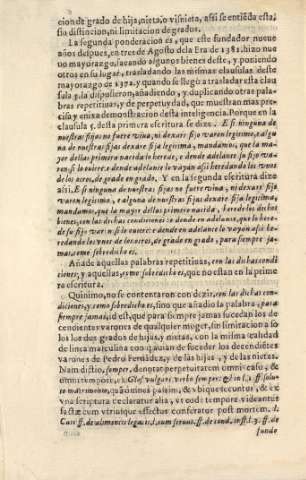 cion de grado de hija, nieta, o visnieta, assi se entiēda esta,
sin distincion, ni limitacion de grados.
La segunda ponderacion es, que este fundador nueue
años despues, en tres de Agosto de la Era de 1381. hizo nue
uo mayorazgo, sacando algunos bienes deste, y poniendo
otros en su lugar, trasladando las mismas clausulas deste
mayorazgo de 1372. y quando se llegò a trasladar esta clau
sula 5. la dispusieron, añadiendo, y duplicando otras pala-
bras repetitiuas, y de perpetuydad, que muestran mas pre-
cisa y enixa demostracion desta inteligencia. Porque en la
clausula 5. desta primera escritura se dize. E si ninguno de
nuestras fijas no fuere viua, ni dexare fijo varen legitimo, e algu
na de nuestras fijas dexare fija legitima, mandamos, que la ma-
yor dellas primera nacida lo herede, e dende adelante su fijo va-
ron si lo ouiere: e dende adelante lo vayan assi heredando los vnos
de los otros, de grado en grado. Y en la segunda escritura dize
assi. E si ninguna de nuestras fijas no fuere viua, ni dexare fijo
varon legitimo, e alguna de nuestras fijas dexare fija legitima,
mandamos, que la mayor dellas primera nacida, herede los dichos
bienes, con las dichas condiciones: e dende en adelante, que lo here-
de su fijo varon si lo ouiere: e dende en adelante lo vayan assi he-
redando los vnos de los otros, de grado en grado, para siempre ja-
mas, como sobredicho es.
Añade aquellas palabras repetitiuas, con las dichas condi
ciones, y aquellas, como sobredicho es, que no estan en la prime
ra escritura.
Quinimo, no se contentaron con dezir, con las dichas con-
diciones, y como sobredicho es, sino que añadio la palabra, para
siempre jamas, id est, que para siempre jamas sucedan los de
cendientes varones de qualquier muger, sin limitacion a so
los los dos grados de hijas, y nietas, con la misma calidad
de linea masculina con que auian de suceder los decendiētes
varones de Pedro Fernādez, y de las hijas, y de las nietas.
Nam dictio, semper, denotat vbique omnem casum, &
omne tempus, Glos. vulgar. verbo semper,
to matrimonio,
na scriptura declaratur alia, vt eodē tempore videantur
factæ cum vtriusque effectus conferatur post mortem. l.
de alimentis legatis, l. cum seruus. ff. de cond. in ff. l. 3. ff. de
fundo